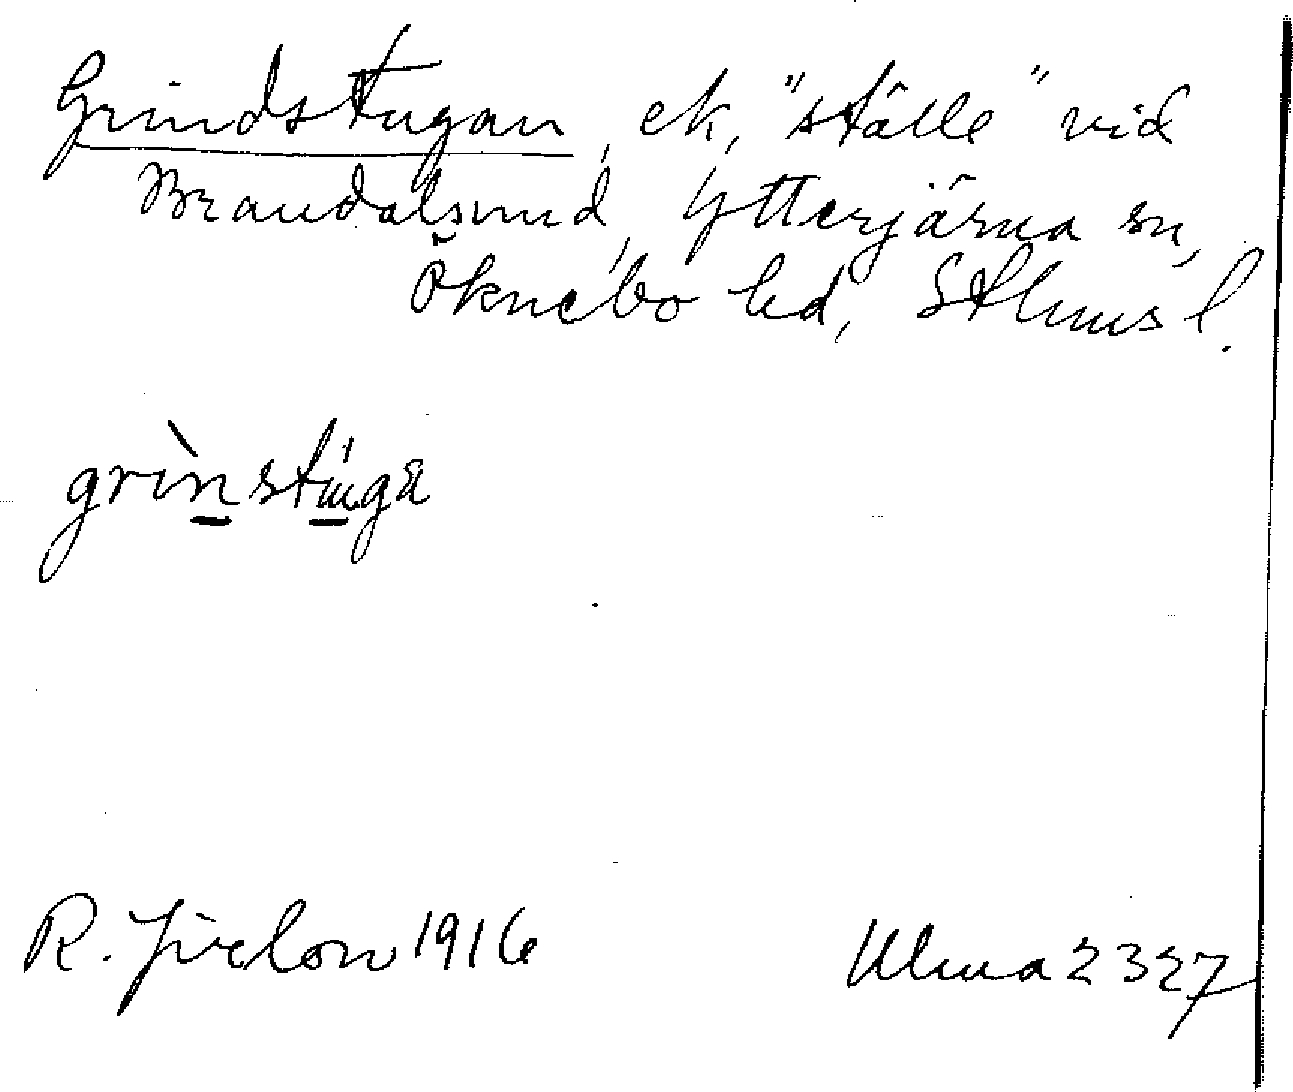 Grindstugan, ek, "ställe" vid
Brandalsund, Ytterjärna sn,
Öknebo hd, Sthms l.
grìnstuga
R. Jirlow 1916
Ulma 2327